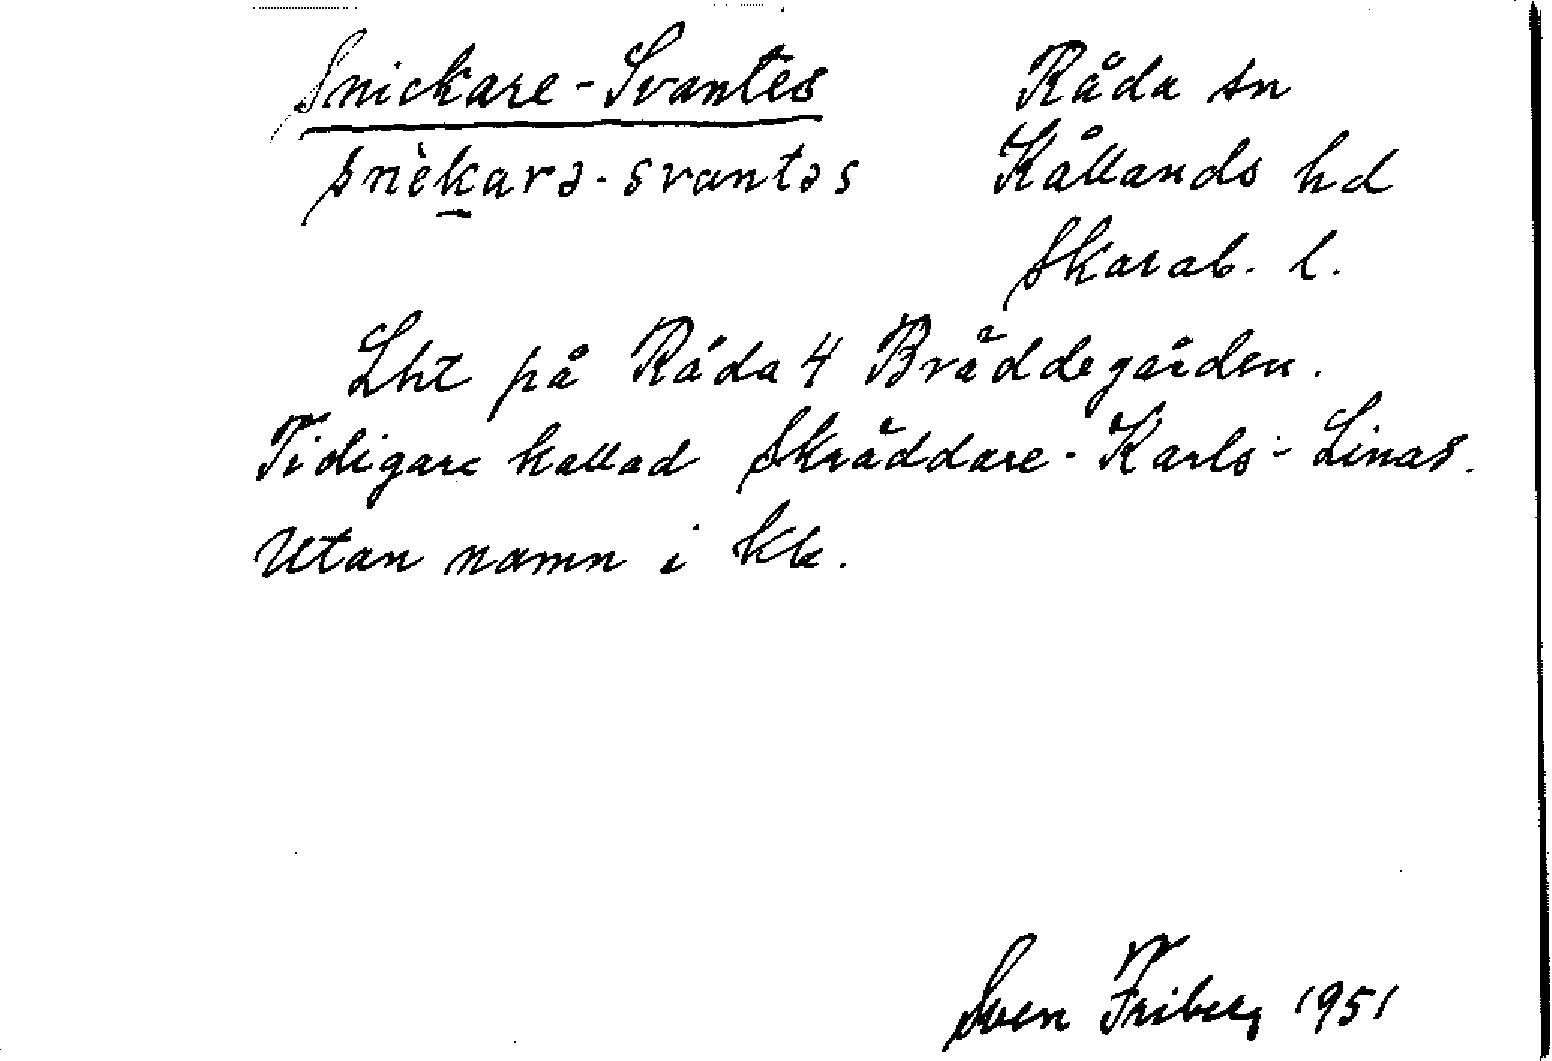 Snickare-Svantes
Råda sn
snèkarə-svantəs
Kållands hd
Skarab. l.
Lht på Råda 4 Bräddegården.
Tidigare kallad Skräddare-Karls-Linas.
Utan namn i kk.
Sven Friberg 1951